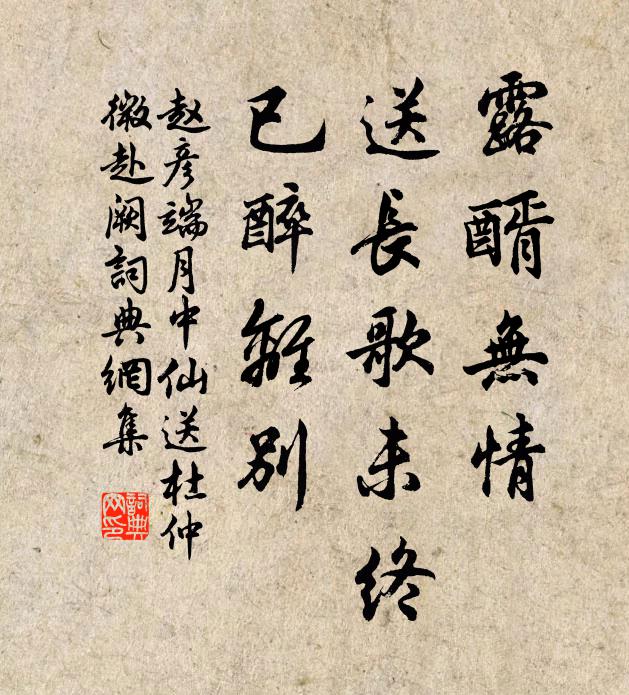 露醑無情
送長歌未終
已醉離別
赵彦端月中仙送杜仲
微赴阙詞典網集
詞典网印